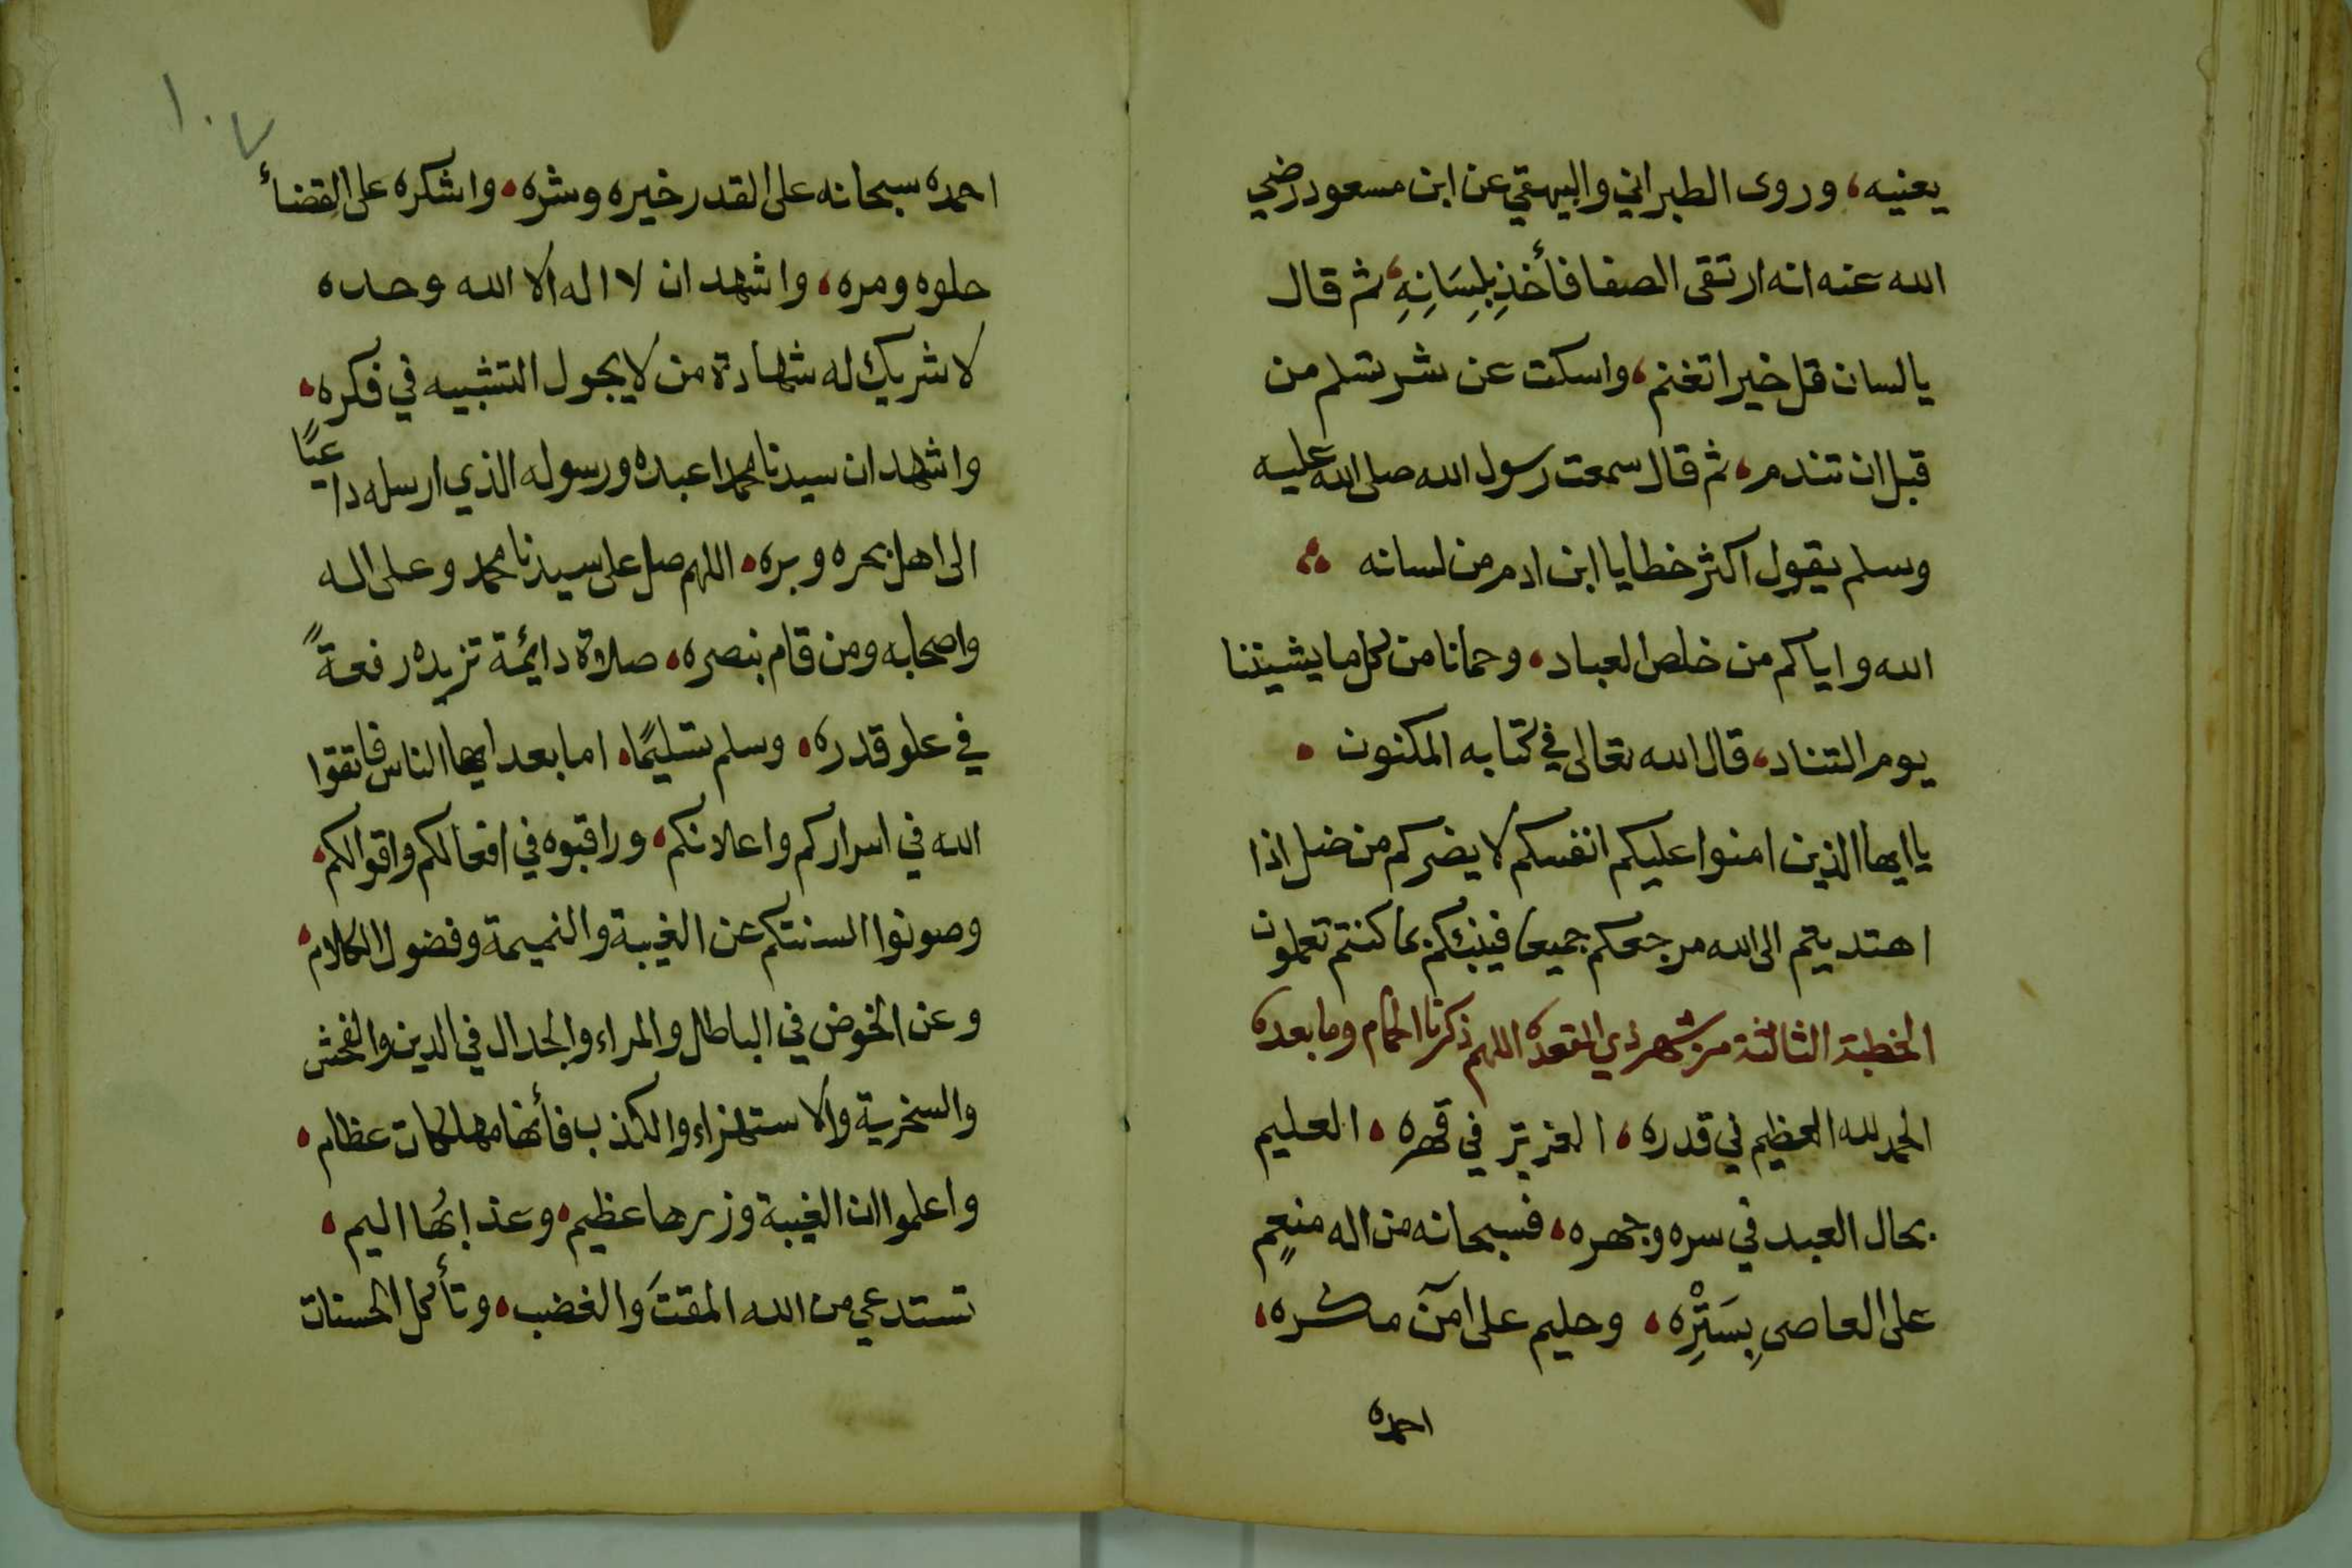 يعنيه، وروى الطبراني والبيهقي عن ابن مسعود رضي
الله عنه انه ارتقى الصفا فأخذ بِلِسَانِهِ، ثم قال
يا لسان قل خيرا تغنم، واسكت عن شر تسلم من
قبل ان تندم، ثم قال سمعت رسول الله صلى الله عليه
وسلم يقول اكثر خطايا ابن ادم من لسانه
الله واياكم من خلص العباد، وحمانا من كل ما يشيننا
يوم التناد، قال الله تعالى في كتابه المكنون
يا ايها الذين امنوا عليكم انفسكم لا يضركم من ضل اذا
اهتديتم الى الله مرجعكم جميعا فينبئكم بما كنتم تعملون
الخطبة الثالثة من شهر ذي القعده اللهم ذكرنا الحمام وما بعده
الحمد لله العظيم في قدره، العزيز في قهره، العليم
بحال العبد في سره وجهره، فسبحانه من اله منعِمٍ
على العاصي بِسَتْرِه، وحليم على امن مكره،
احمده
١٠٧
احمده سبحانه على القدر خيره وشره، واشكره على القضاء
حلوه ومره، واشهد ان لا اله الا الله وحده
لا شريك له شهادة من لا يجول التشبيه في فكره،
واشهد ان سيدنا محمدا عبده ورسوله الذي ارسله داعيًا
الى اهل بحره وبره، اللهم صل على سيدنا محمد وعلى اله
واصحابه ومن قام بنصره، صلاة دائمة تزيده رفعةً
في علو قدره، وسلم تسليمًا، اما بعد ايها الناس فاتقوا
الله في اسراركم واعلانكم، وراقبوه في افعالكم واقوالكم،
وصونوا السنتكم عن الغيبة والنميمة وفضول الكلام،
وعن الخوض في الباطل والمراء والجدال في الدين والفحش
والسخرية والاستهزاء والكذب فأنها مهلكات عظام،
واعلموا ان الغيبة وزرها عظيم، وعذابُها اليم،
تستدعي من الله المقتَ والغضب، وتأكل الحسنات